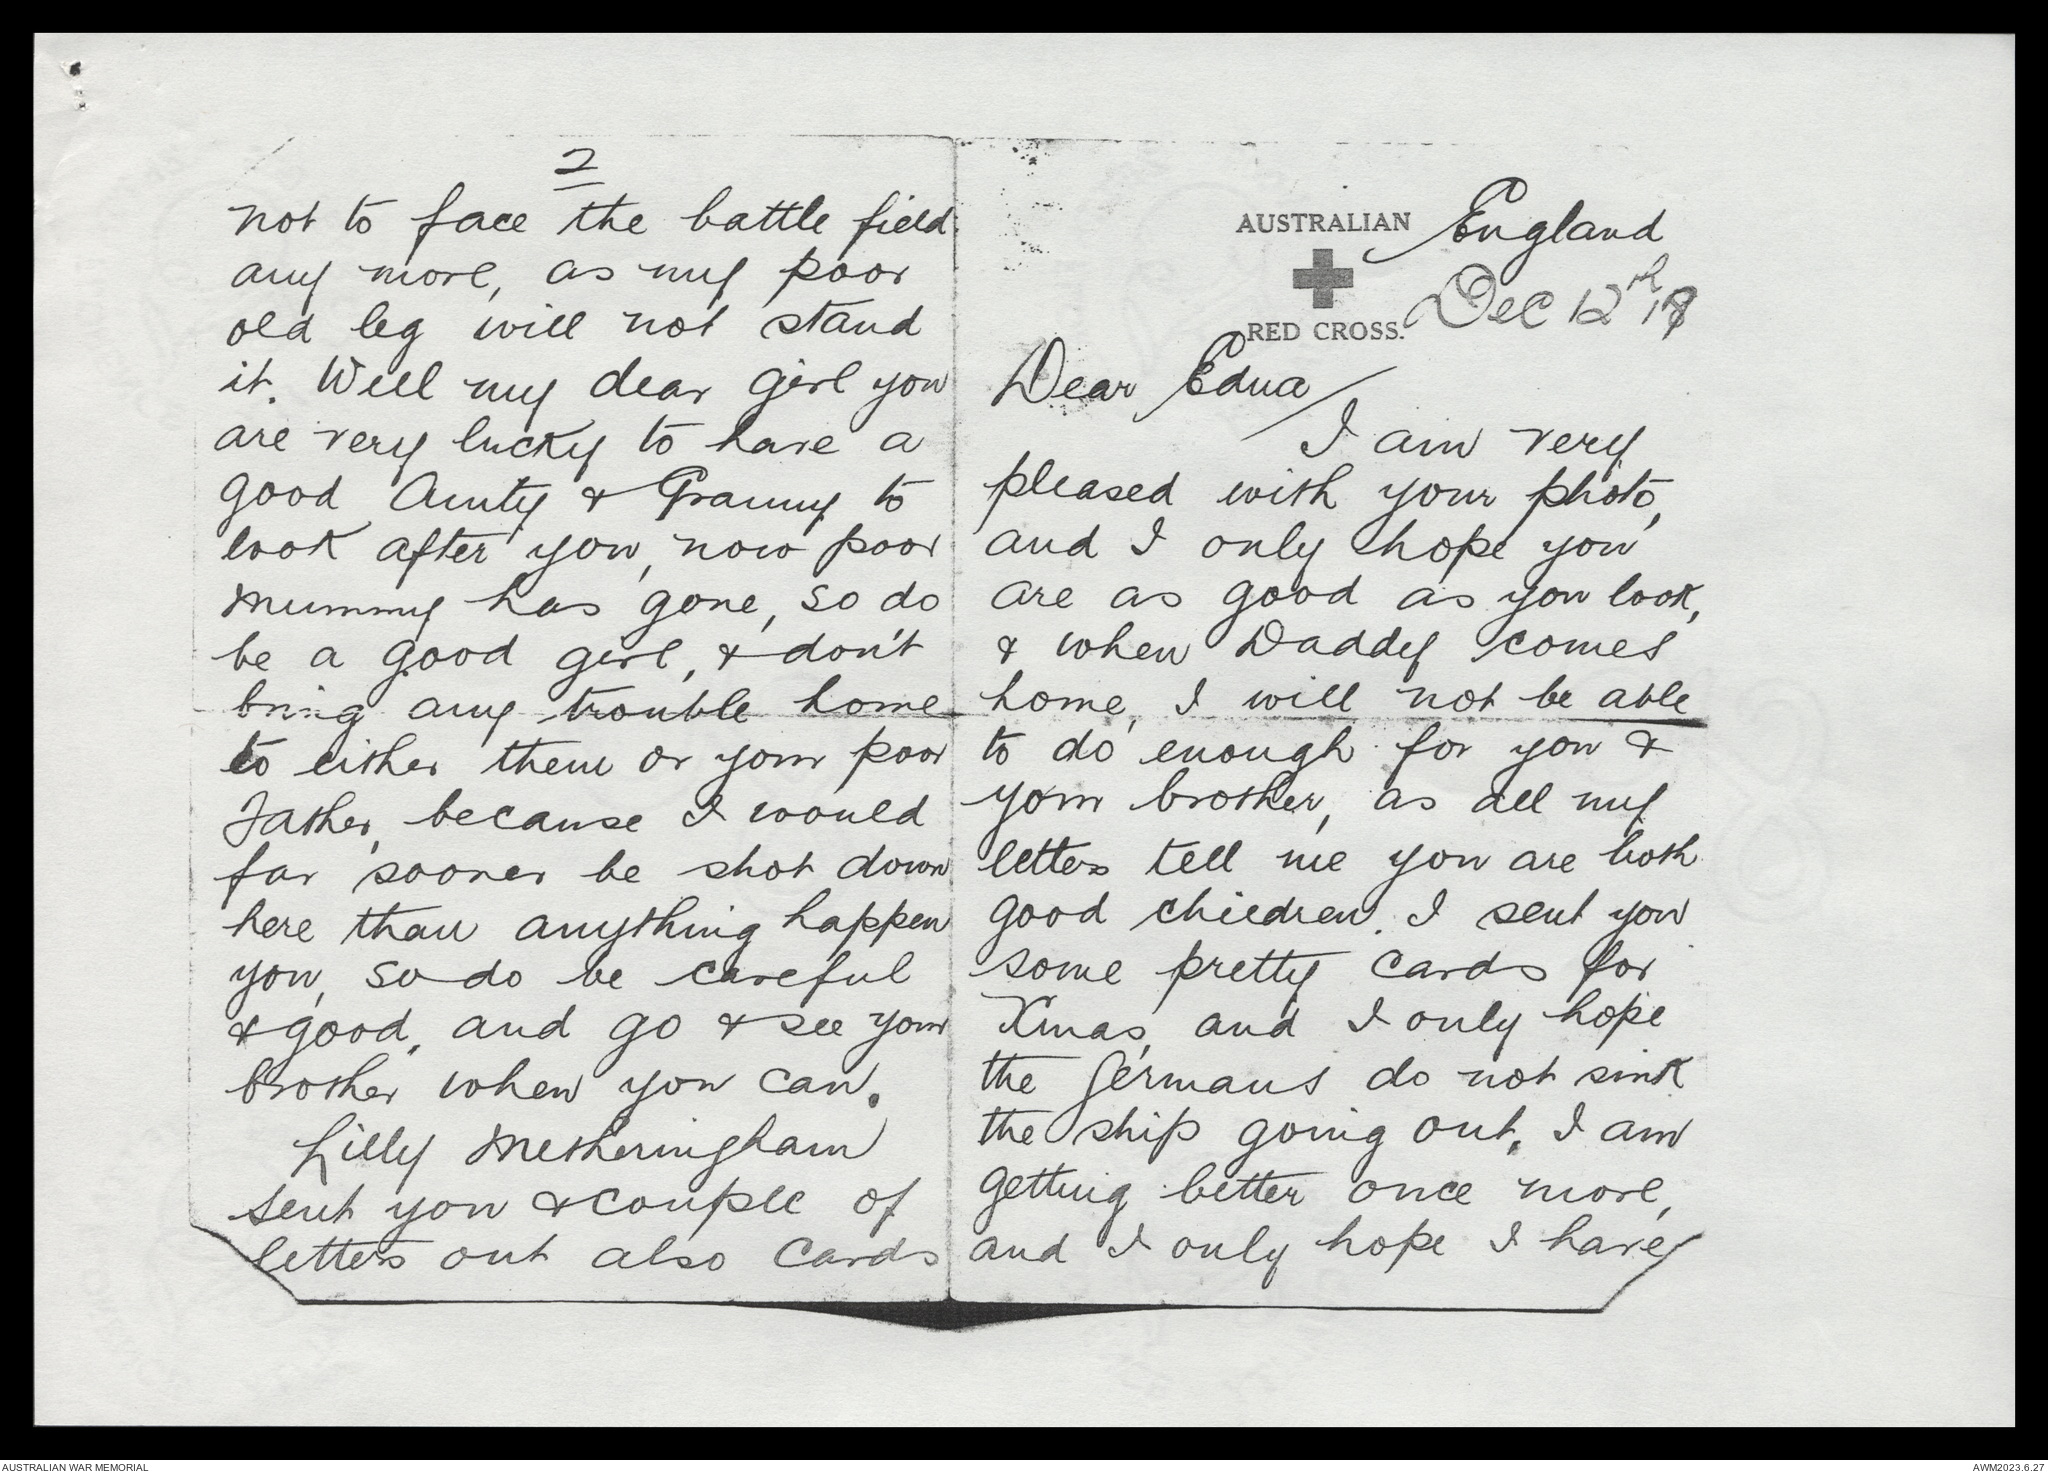 AUSTRALIAN
RED CROSS.
England
Dec 12th 17
Dear Edna
I am very
pleased with your photo,
and I only hope you
are as good as you look,
& when Daddy comes
home, I will not be able
to do enough for you &
your brother, as all my
letters tell me you are both
good children. I sent you
some pretty cards for
Xmas, and I only hope
the Germans do not sink
the ship going out. I am
getting better once more,
and I only hope I have
2
not to face the battle field
any more, as my poor
old leg will not stand
it. Well my dear girl you
are very lucky to have a
good Aunty & Granny to
look after you, now poor
Mummy has gone, so do
be a good girl, & don't
bring any trouble home
to either them or your poor
Father, because I would
far sooner be shot down
here than anything happen
you, so do be careful
& good, and go & see your
brother when you can.
Lilly Metheringham
sent you a couple of
letters out also cards
AUSTRALIAN WAR MEMORIAL
AWM2023.6.27